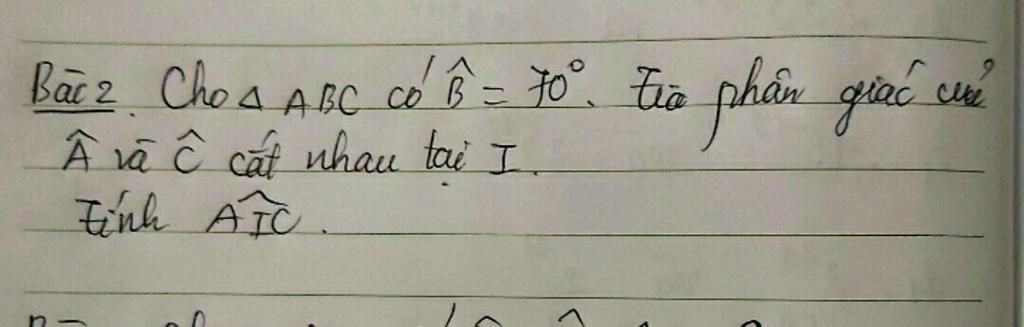 Bài 2. Cho Δ ABC có B̂ = 70°. Tia phân giác của
Â và Ĉ cắt nhau tại I.
Tính AÎC.